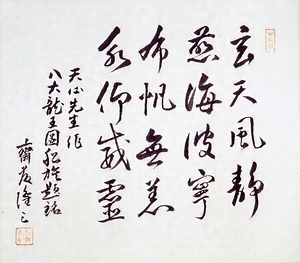 玄天風靜
慈海波寧
布帆無恙
永仰威靈
天心先生作
八大龍王圖 題銘
齋藤隆三